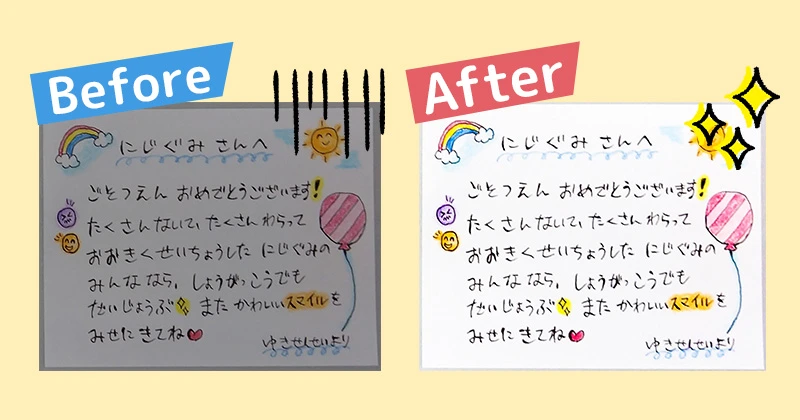 Before
にじぐみ さんへ
ごそつえん おめでとうございます!
たくさんないて、たくさん わらって
おおきくせいちょうした にじぐみの
みんな なら、しょうがっこうでも
だいじょうぶ また かわいいスマイルを
みせに きてね
ゆさせんせいより
After
にじぐみ さんへ
ごそつえん おめでとうございます!
たくさんないて、たくさん わらって
おおきくせいちょうした にじぐみの
みんな なら、しょうがっこうでも
だいじょうぶ また かわいいスマイルを
みせに きてね
ゆさせんせいより